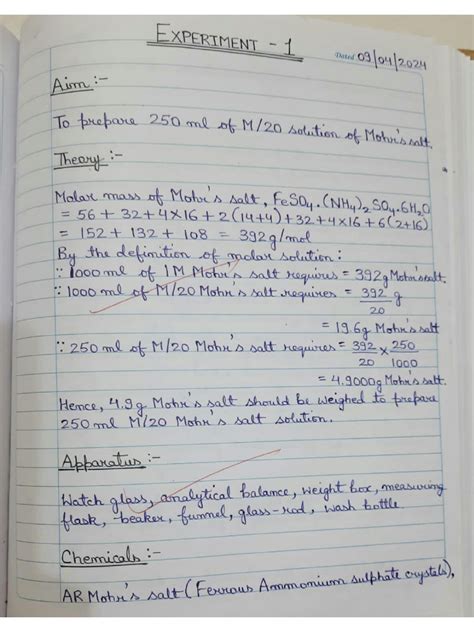 EXPERIMENT - 1
Dated 09/04/2024
Aim :-
To prepare 250 ml of M/20 solution of Mohr's salt.
Theory :-
Molar mass of Mohr's salt, FeSO4.(NH4)2SO4.6H2O
= 56 + 32 + 4×16 + 2(14+4) + 32 + 4×16 + 6(2+16)
= 152 + 132 + 108 = 392 g/mol
By the definition of molar solution :
∵ 1000 ml of 1M Mohr's salt requires = 392g Mohr's salt.
∵ 1000 ml of M/20 Mohr's salt requires = 392/20 g
= 19.6g Mohr's salt
∵ 250 ml of M/20 Mohr's salt requires = 392/20 × 250/1000
= 4.9000g Mohr's salt.
Hence, 4.9g Mohr's salt should be weighed to prepare
250 ml M/20 Mohr's salt solution.
Apparatus :-
Watch glass, analytical balance, weight box, measuring
flask, beaker, funnel, glass-rod, wash bottle
Chemicals :-
AR Mohr's salt (Ferrous Ammonium sulphate crystals),